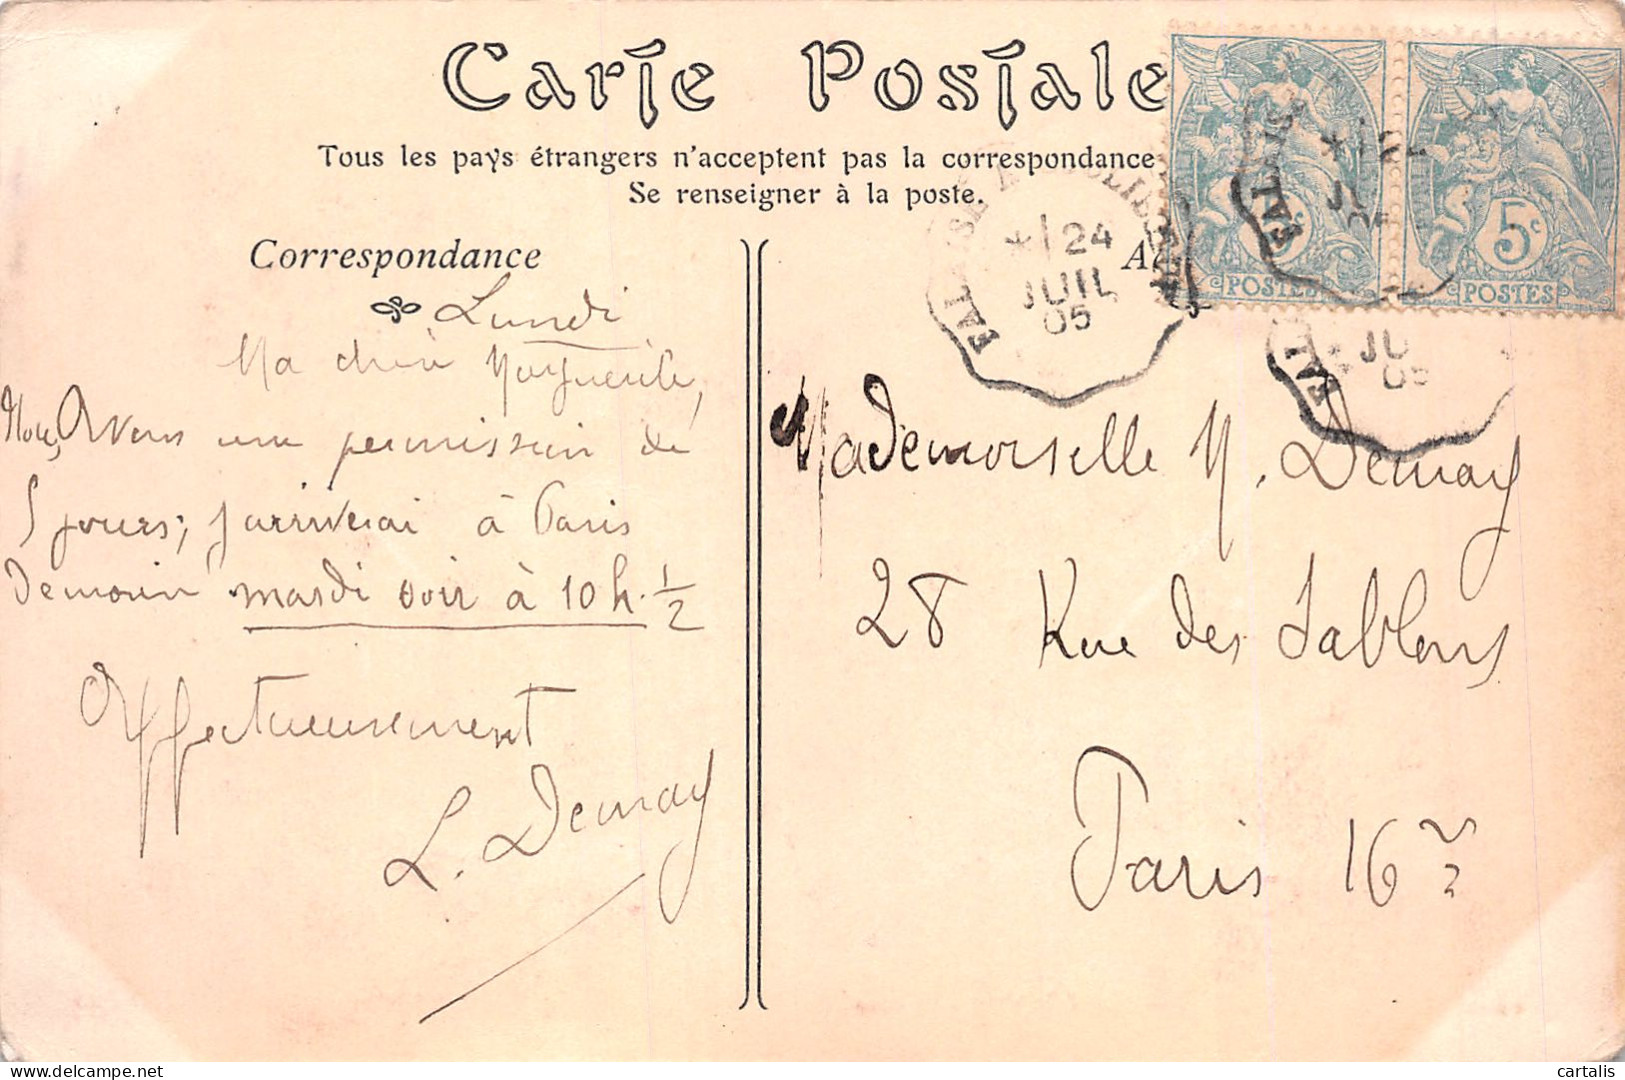 Carte Postale
Tous les pays étrangers n'acceptent pas la correspondance
Se renseigner à la poste.
Correspondance
Lundi
Ma chère Marguerite,
Nous avons une permission de
5 jours; j'arriverai à Paris
Demain mardi soir à 10 h. 1/2
Affectueusement
L. Demay
Mademoiselle M. Demay
28 Rue des Sablons
Paris 16e
24
JUIL
05
FALAISE A
POSTES
5c
POSTES
FALAISE
FAL
JU
05
delcampe.net
cartalis